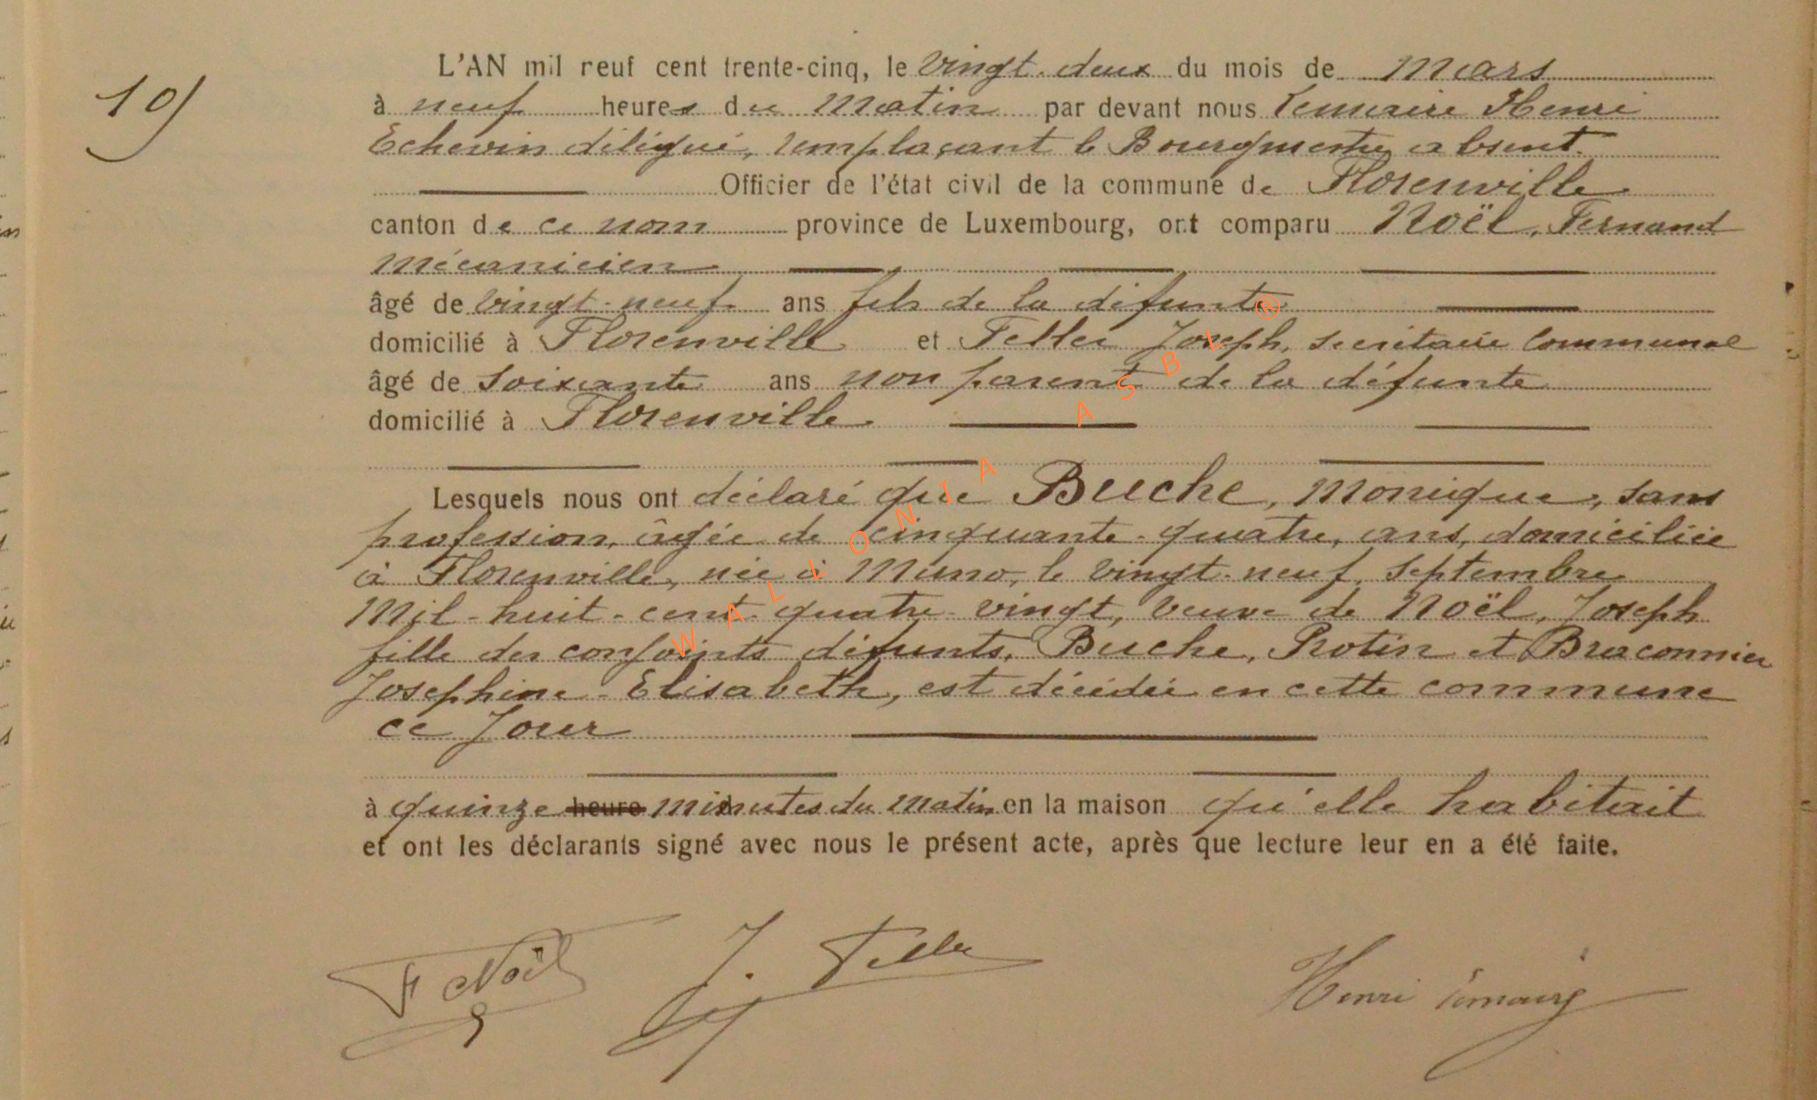 19
L'AN mil neuf cent trente-cinq, le Vingt-deux du mois de Mars
à neuf heures du Matin par devant nous Lemaire Henri
Echevin délégué, remplaçant le Bourgmestre absent.
Officier de l'état civil de la commune de Florenville
canton de ce nom province de Luxembourg, ont comparu Noël, Fernand
Mécanicien
âgé de Vingt-neuf ans fils de la défunte
domicilié à Florenville et Feller Joseph, secrétaire Communal
âgé de Soixante ans non parent de la défunte
domicilié à Florenville.
Lesquels nous ont déclaré que Buche, Monique, sans
profession, âgée de cinquante-quatre, ans, domiciliée
à Florenville, née à Muno, le Vingt-neuf, Septembre
Mil-huit-cent-quatre-vingt, Veuve de Noël, Joseph
fille des conjoints défunts, Buche, Protin et Braconnier
Josephine-Elisabeth, est décédée en cette commune
ce Jour
à quinze heure minutes du Matin en la maison qu'elle habitait
et ont les déclarants signé avec nous le présent acte, après que lecture leur en a été faite.
F Noël J. Feller Henri Lemaire
WALLONIA ASBL ®